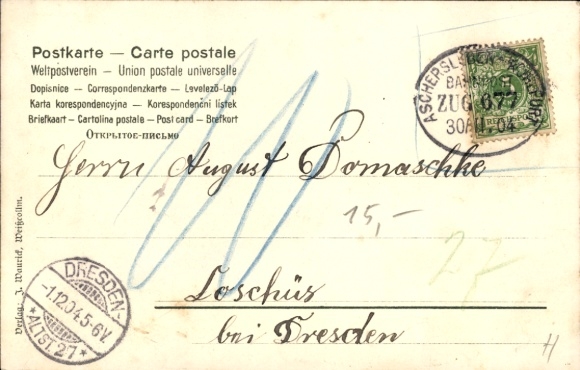 Postkarte — Carte postale
Weltpostverein — Union postale universelle
Dopisnice — Correspondenzkarte — Levelező-Lap
Karta korespondencyjna — Korespondenční lístek
Briefkaart — Cartolina postale — Post card — Brefkort
Открытое-письмо
ASCHERSLEBEN
BAHNPOST
ZUG 677
30.11.04
REICHSPOST
Herrn August Domaschke
15,-
Loschüs
bei Dresden
DRESDEN-
-1.12.04.5-6V.
*ALTST.27*
Verlag: J. Waurick, Weißcollm.